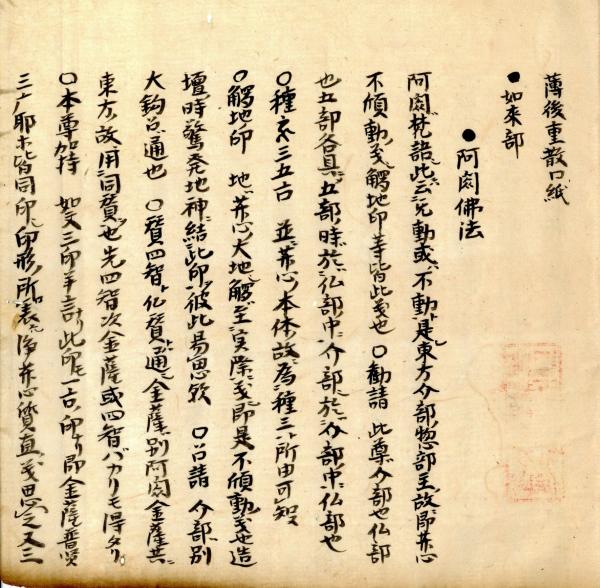 薄後重散口紙
●如来部
●阿閦佛法
阿閦梵語此云无動或不動是東方金剛部惣部主故即菩提心
不傾動義觸地印等皆此義也 〇勧請 此尊金剛部也仏部
也五部各具五部時於仏部中金剛部於金剛部中仏部也
〇種子三五古 並菩提心本体故為種三所由可知
〇觸地印 地菩提心大地觸至実際義即是不傾動義也造
壇時驚発地神結此印彼此易思歟 〇召請 金剛部別
大鈎召通也 〇賛四智仏賛通金薩別阿閦金薩共
東方故用同賛也先四智次金薩或四智バカリモ得タリ
〇本尊加持 如文三印半計此印一古印ナリ即金薩普賢
三广耶ホ皆同印印形所表浄菩提心質直義思之又三